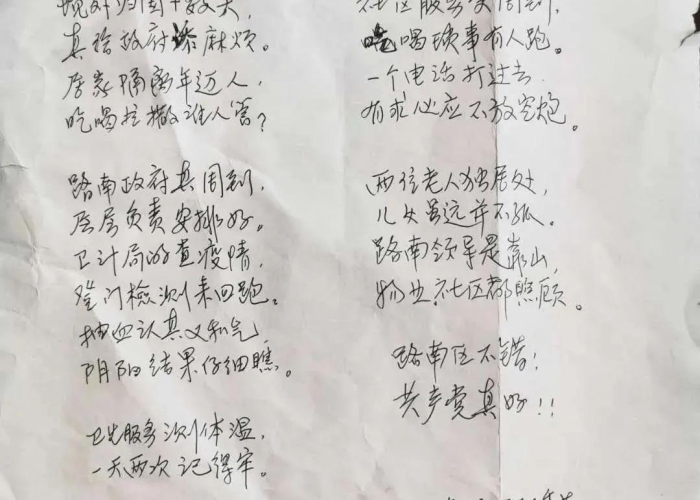 境外归国十数天,
真给政府添麻烦。
居家隔离年迈人,
吃喝拉撒谁人管?
路南政府真周到,
层层负责安排好。
卫计局的查疫情,
登门检测来回跑。
抽血认真又和气,
阴阳结果仔细瞧。
卫生服务测体温,
一天两次记得牢。
社区服务更周到,
吃喝琐事有人跑。
一个电话打过去
有求必应不放空炮。
两位老人独居处,
儿女虽远并不孤。
路南领导是靠山,
物业社区都照顾。
路南区不错!
共产党真好!!